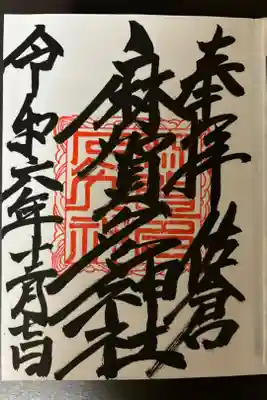 奉拝 佐倉
麻賀多神社
令和六年月日